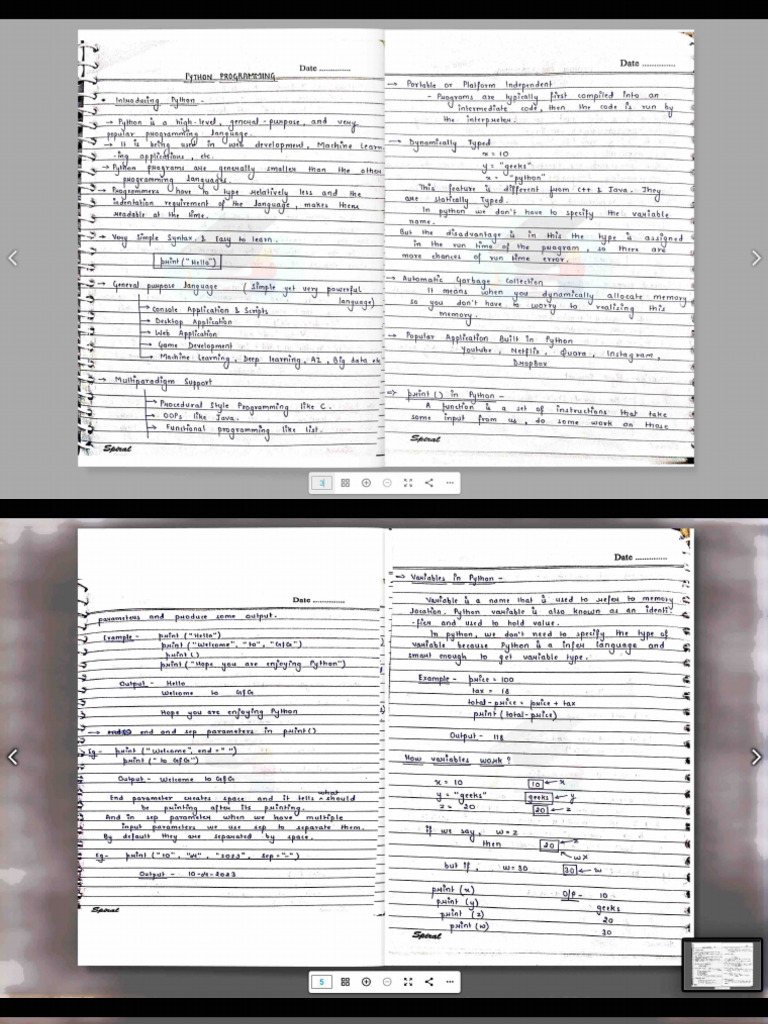 Date ..............
PYTHON PROGRAMMING
• Introducing Python -
→ Python is a high-level, general-purpose, and very
popular programming language.
→ It is being used in web development, Machine Learn
-ing applications, etc.
→ Python programs are generally smaller than the other
programming languages.
→ Programmers have to type relatively less and the
indentation requirement of the language, makes them
readable at the time.
→ Very Simple Syntax & Easy to learn.
print("Hello")
→ General purpose language (Simple yet very powerful
language)
→ Console Application & Scripts
→ Desktop Application
→ Web Application
→ Game Development
→ Machine Learning, Deep learning, AI, Big data etc
→ Multiparadigm Support
→ Procedural Style Programming like C.
→ OOPs like Java.
→ Functional programming like list.
Spiral
Date ..............
→ Portable or Platform Independent
- Programs are typically first compiled into an
intermediate code, then the code is run by
the interpreter.
→ Dynamically Typed
x = 10
y = "geeks"
x = "python"
This feature is different from C++ & Java. They
are statically Typed.
In python we don't have to specify the variable
name.
But the disadvantage is in this the type is assigned
in the run time of the program, so there are
more chances of run time error.
→ Automatic Garbage collection
It means when you dynamically allocate memory
so you don't have to worry to realising this
memory.
→ Popular Application Built in Python
Youtube, Netflix, Quora, Instagram,
DropBox
⇒ print() in Python -
A function is a set of instructions that take
some input from us, do some work on those
Spiral
3
Date ..............
parameters and produce some output.
Example - print ("Hello")
print ("Welcome", "to", "GfG")
print ()
print ("Hope you are enjoying Python")
Output - Hello
Welcome to GfG
Hope you are enjoying Python
→ end and sep parameters in print()
Eg - print ("Welcome", end = " ")
print (" to GfG")
Output - Welcome to GfG
End parameter creates space and it tells what should
be printing after its printing.
And in sep parameter when we have multiple
input parameters we use sep to separate them.
By default they are separated by space.
Eg - print ("10", "04", "2023", sep = "-")
Output - 10-04-2023
Spiral
Date ..............
⇒ Variables in Python -
Variable is a name that is used to refer to memory
location. Python variable is also known as an identi
-fier and used to hold value.
In python, we don't need to specify the type of
variable because Python is a infer language and
smart enough to get variable type.
Example - price = 100
tax = 18
total-price = price + tax
print (total-price)
Output - 118
How variables work?
x = 10 10 ← x
y = "geeks" geeks ← y
z = 20 20 ← z
if we say, w = z
then 20 ← z
w
but if, w = 30 30 ← w
print (x) O/P - 10
print (y) geeks
print (z) 20
print (w) 30
Spiral
5